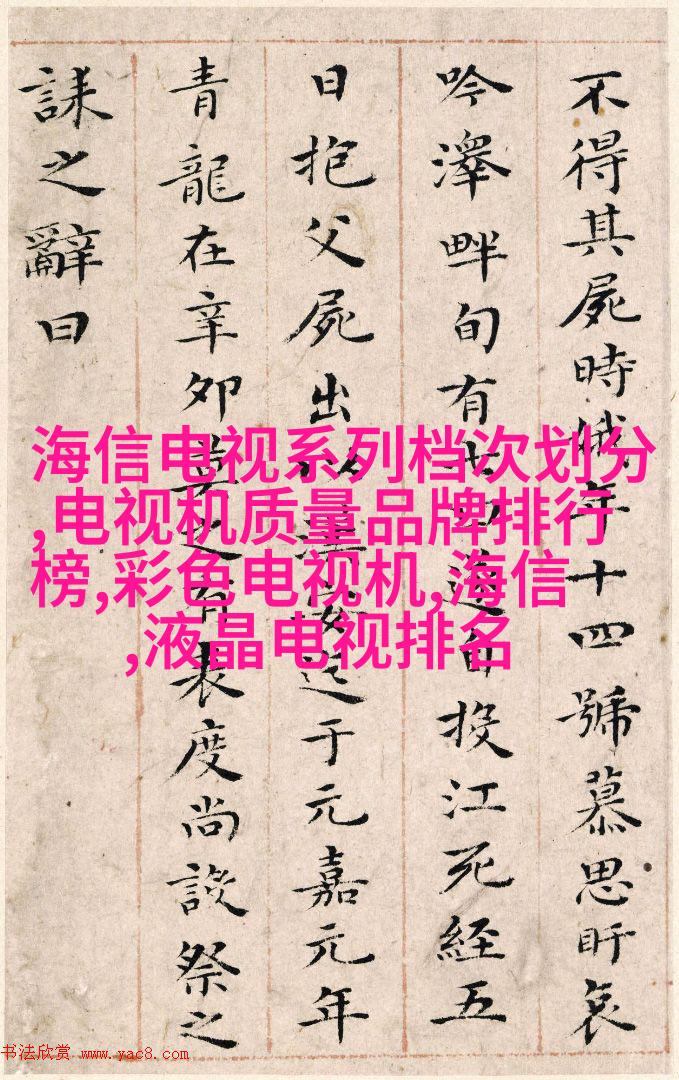 不得其屍時娥年十四號慕思盱哀
吟澤畔旬有七日遂自投江死經五
日抱父屍出以漢安迄于元嘉元年
青龍在辛卯莫之有表度尚設祭之
誄之辭曰
海信电视系列档次划分
,电视机质量品牌排行
榜,彩色电视机,海信
,液晶电视排名
书法欣赏 www.yac8.com